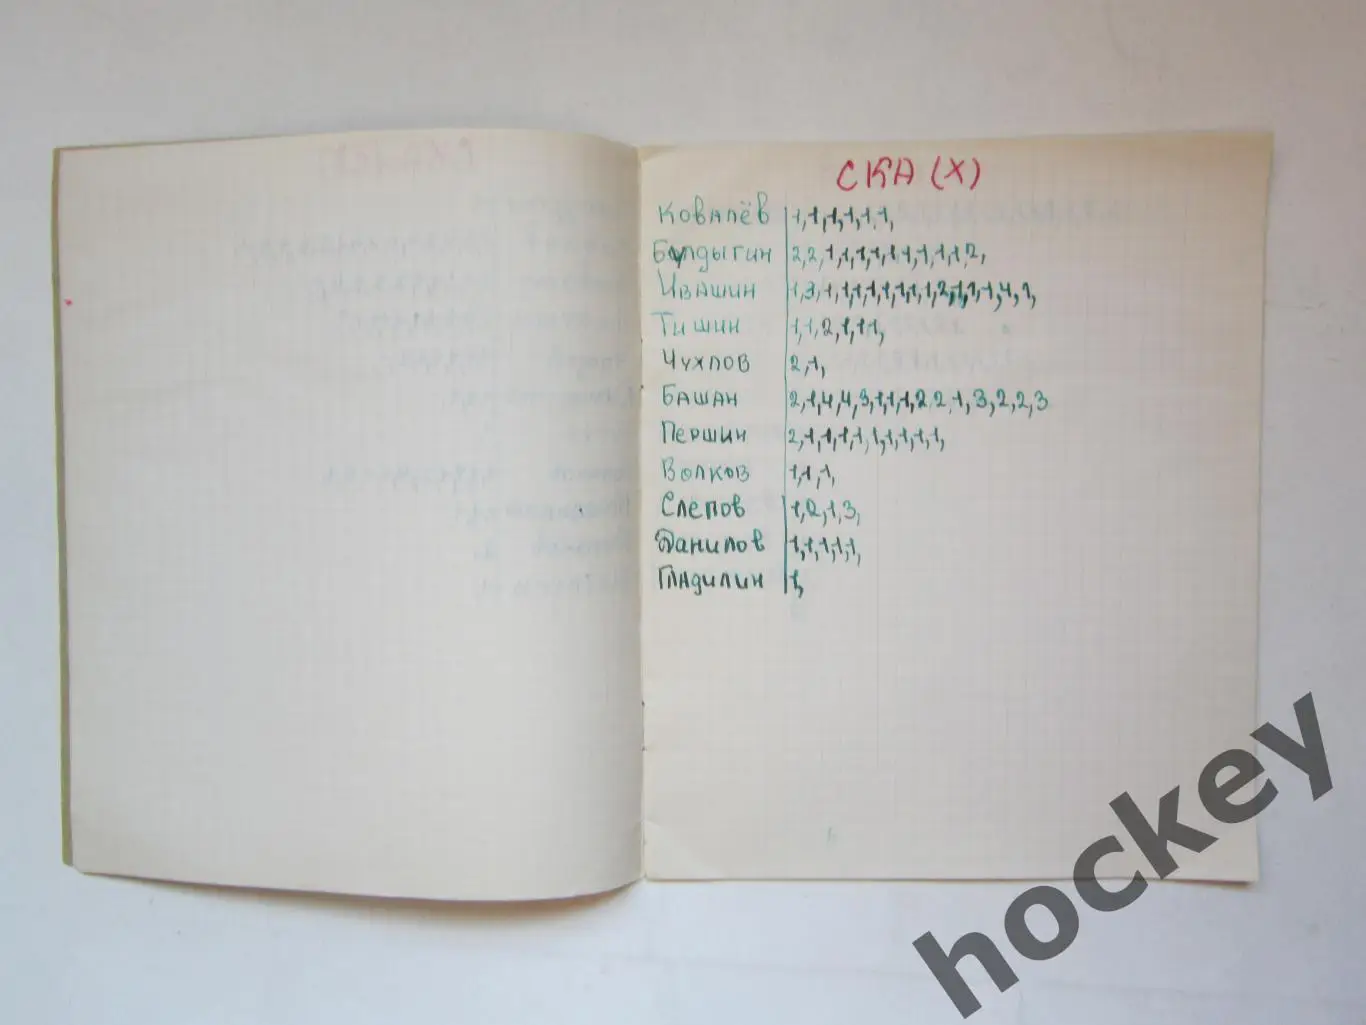 СКА (Х)
Ковалёв 1,1,1,1,1,1,
Болдыгин 2,2,1,1,1,1,1,1,1,1,1,2,
Ивашин 1,3,1,1,1,1,1,1,1,1,2,1,1,1,4,1,
Тишин 1,1,2,1,1,1,
Чухлов 2,1,
Башан 2,1,4,4,3,1,1,1,2,2,1,3,2,2,3
Першин 2,1,1,1,1,1,1,1,1,1,
Волков 1,1,1,
Слепов 1,2,1,3,
Данилов 1,1,1,1,1,
Гладилин 1,
hockey